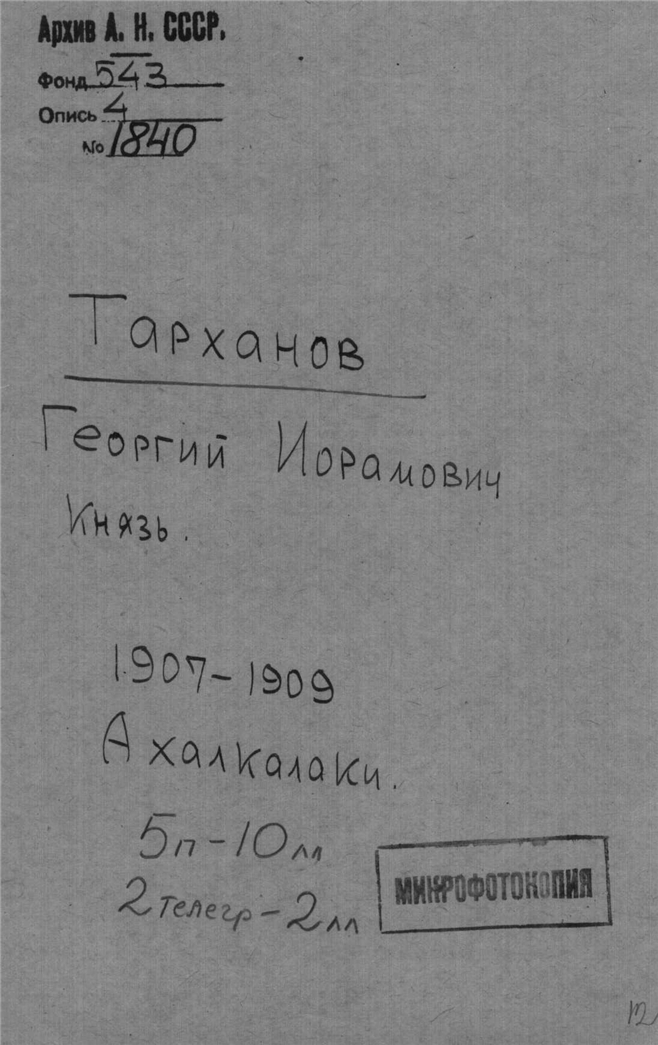 Архив А. Н. СССР.
Фонд 543
Опись 4
№ 1840
Тарханов
Георгий Иорамович
Князь.
1907-1909
Ахалкалаки.
5п-10лл
2телегр-2лл
МИКРОФОТОКОПИЯ
12